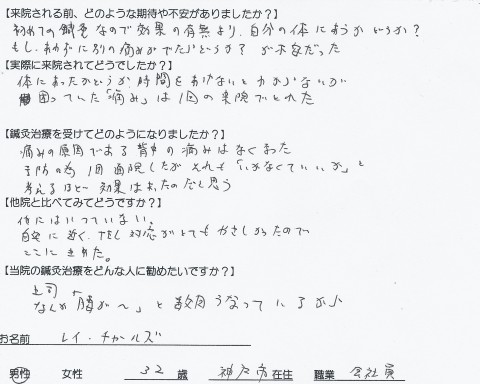 【来院される前、どのような期待や不安がありましたか？】
初めての鍼灸なので効果の有無より、自分の体にあうかどうか？
もし、あわずに別の痛みがでたらどうか？ が不安だった
【実際に来院されてどうでしたか？】
体にあったかどうか、時間をあけないとわからないが
困っていた「痛み」は1回の来院でとれた
【鍼灸治療を受けてどのようになりましたか？】
痛みの原因である背中の痛みはなくなった
予防の為1回通院したがそれも「いかなくていいか」と
考えるほど 効果はあったのだと思う
【他院と比べてみてどうですか？】
他にはいっていない。
自宅に近く、TEL対応がとてもやさしかったので
ここにきめた。
【当院の鍼灸治療をどんな人に勧めたいですか？】
上司へ
なんか「腰が〜」と数回うなっているから
お名前 レイ・チャールズ
男性 女性 32 歳 神戸市 在住 職業 会社員